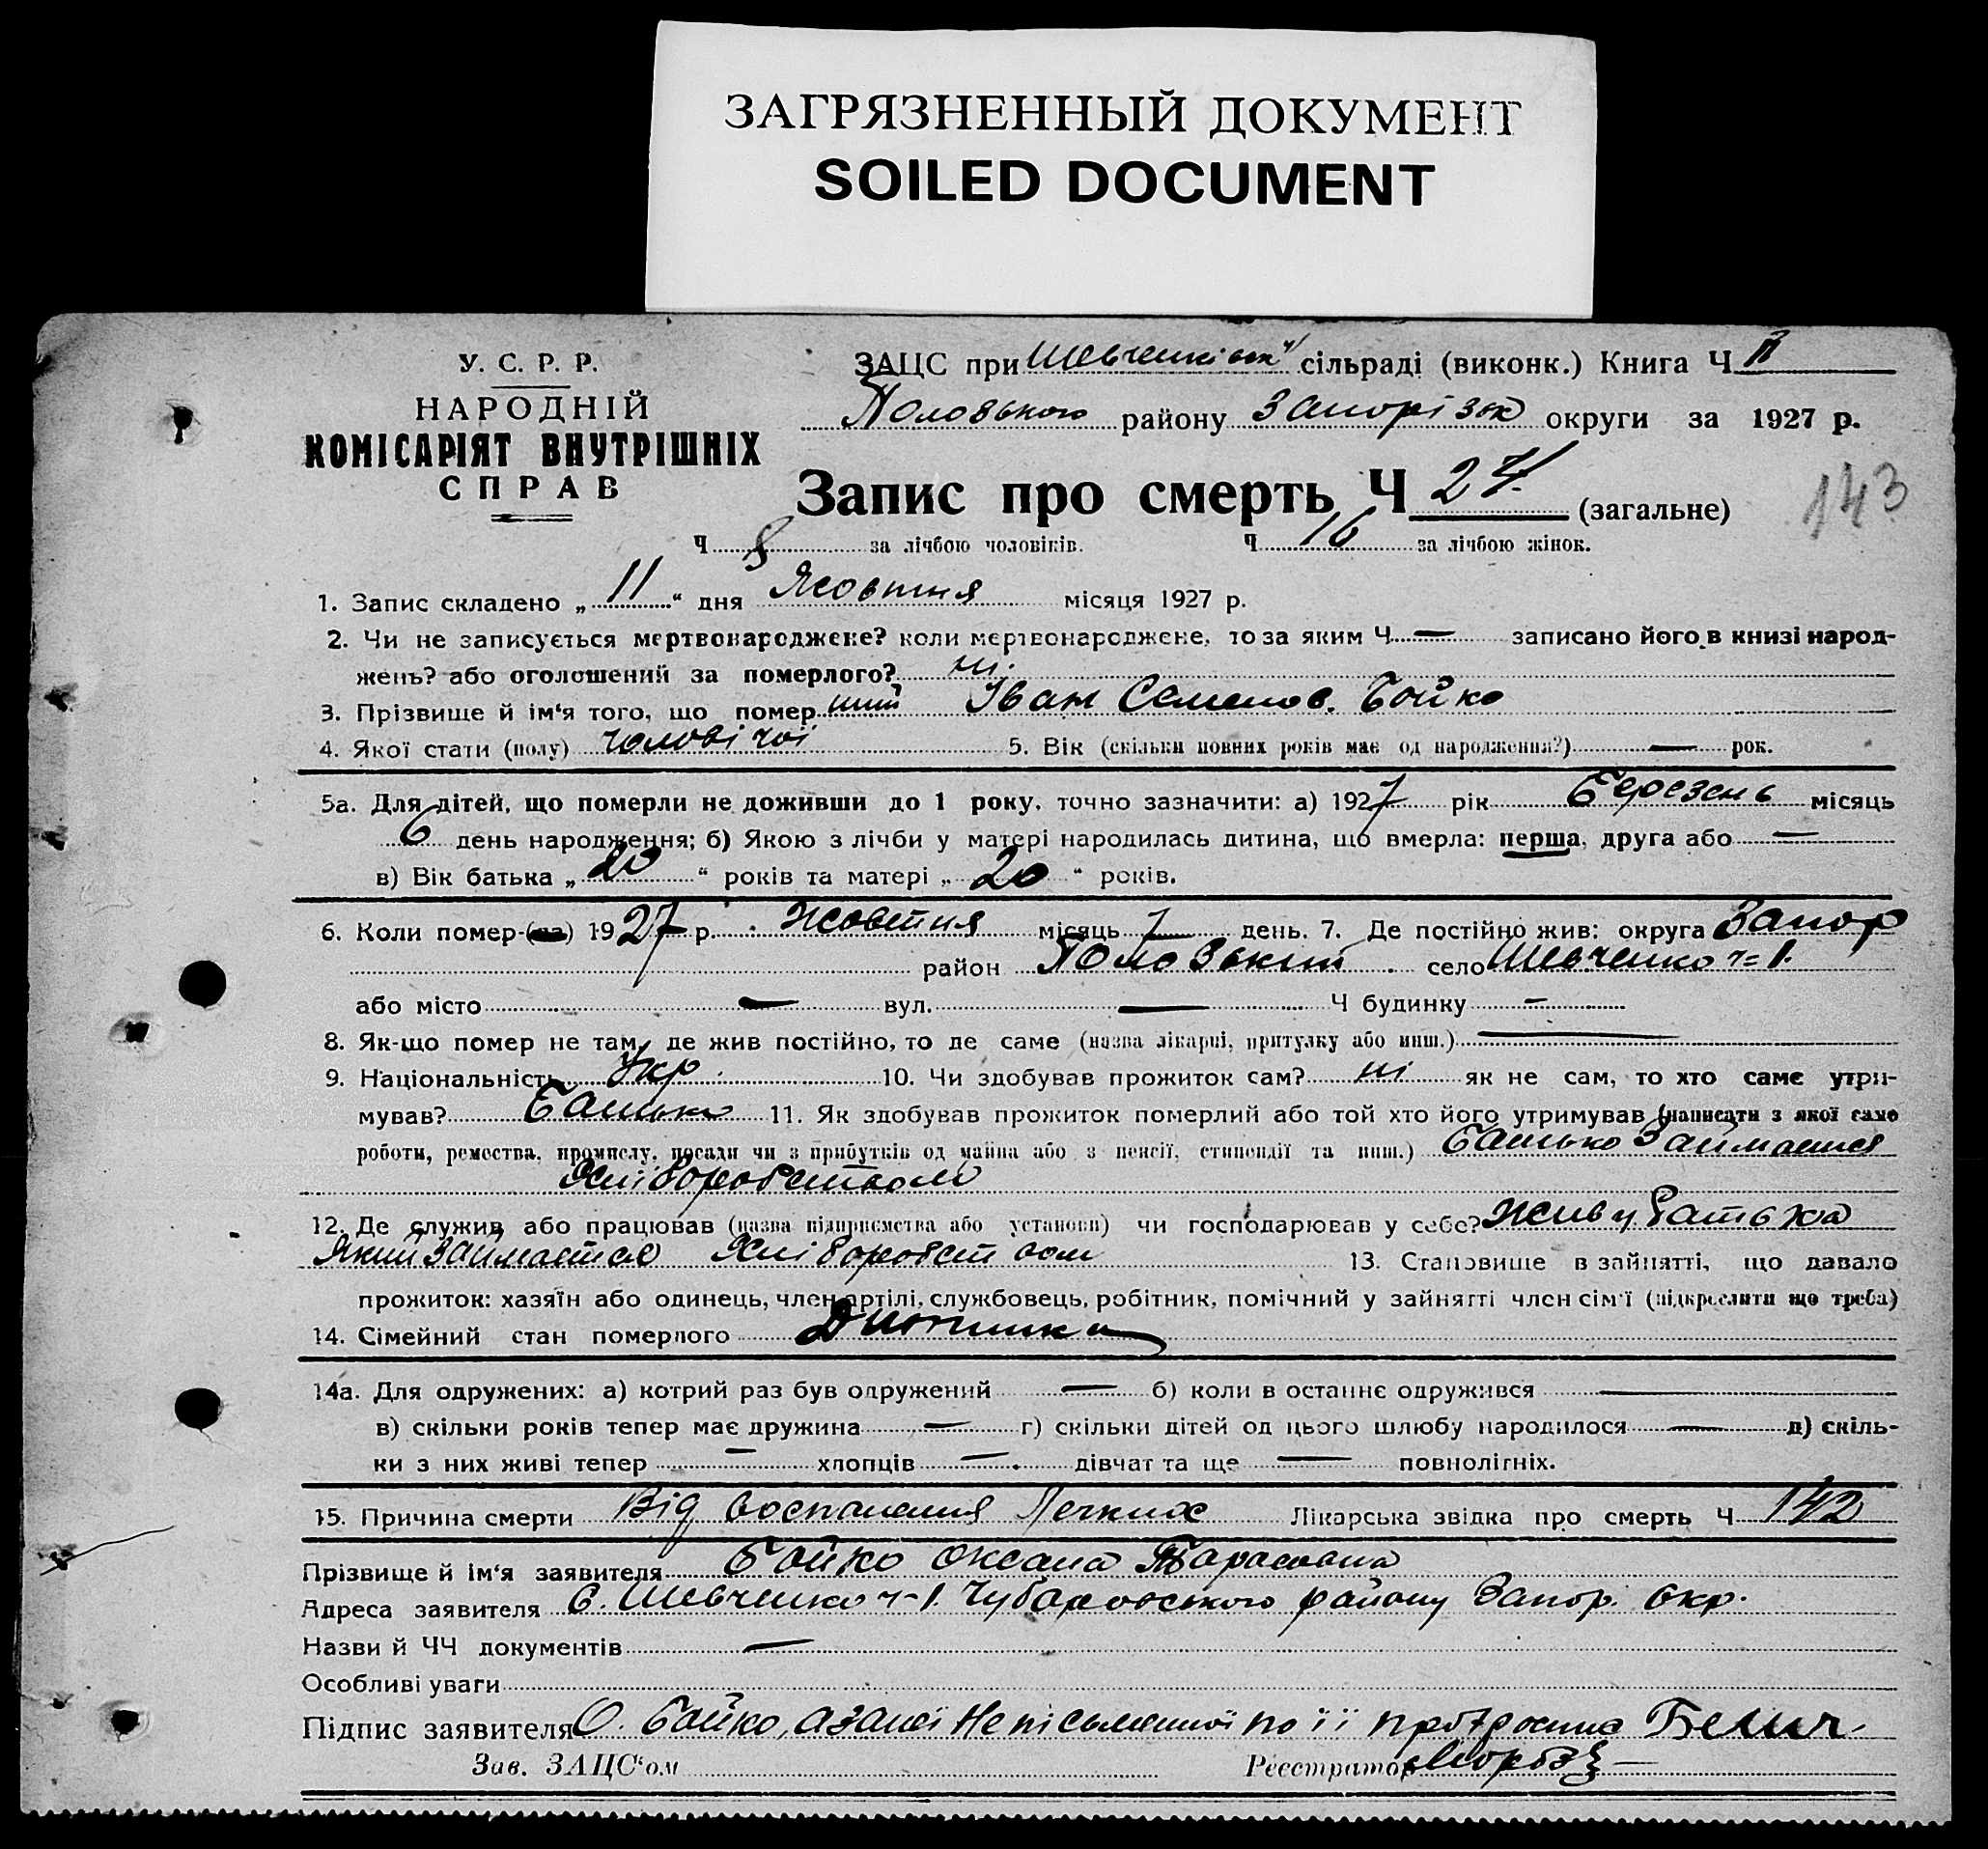 ЗАГРЯЗНЕННЫЙ ДОКУМЕНТ
SOILED DOCUMENT
У. С. Р. Р.
НАРОДНІЙ
КОМІСАРІЯТ ВНУТРІШНІХ
СПРАВ
ЗАЦС при Шевченківськ сільраді (виконк.) Книга Ч II
Пологського району Запорізьк округи за 1927 р.
Запис про смерть Ч 24 (загальне)
143
Ч 8 за лічбою чоловіків. Ч 16 за лічбою жінок.
1. Запис складено „ 11 “ дня Жовтня місяця 1927 р.
2. Чи не записується мертвонароджене? коли мертвонароджене, то за яким Ч — записано його в книзі народ-
жень? або оголошений за померлого? ні.
3. Прізвище й ім‘я того, що помер ший Іван Семенов. Бойко
4. Якої стати (полу) чоловічої 5. Вік (скільки повних років має од народження?) — рок.
5а. Для дітей, що померли не доживши до 1 року, точно зазначити: а) 1927 рік Березень місяць
6 день народження; б) Якою з лічби у матері народилась дитина, що вмерла: перша, друга або —
в) Вік батька „ 20 “ років та матері „ 20 “ років.
6. Коли помер-(ла) 1927 р. Жовтня місяць 7 день. 7. Де постійно жив: округа Запор
район Пологський село Шевченко ч=1.
або місто — вул. — Ч будинку —
8. Як-що помер не там, де жив постійно, то де саме (назва лікарні, притулку або инш.) —
9. Національність Укр. 10. Чи здобував прожиток сам? ні як не сам, то хто саме утри-
мував? Батько 11. Як здобував прожиток померлий або той хто його утримував (написати з якої саме
роботи, ремества, промислу, посади чи з прибутків од майна або з пенсії, стипендії та инш.) Батько Займаєтся
Хліборобством
12. Де служив або працював (назва підприємства або установи) чи господарював у себе? Жив у батька
Який займається Хліборобством 13. Становище в зайнятті, що давало
прожиток: хазяїн або одинець, член артілі, службовець, робітник, помічний у зайнятті член сім‘ї (підкреслити що треба)
14. Сімейний стан померлого Дитинка
14а. Для одружених: а) котрий раз був одружений — б) коли в останнє одружився —
в) скільки років тепер має дружина — г) скільки дітей од цього шлюбу народилося — д) скіль-
ки з них живі тепер — хлопців — дівчат та ще — повнолітніх.
15. Причина смерти Від воспалення Легких Лікарська звідка про смерть Ч 142
Прізвище й ім‘я заявителя Бойко Оксана Тарасовна
Адреса заявителя С. Шевченко ч-1. Чубаровського району Запор. Окр.
Назви й ЧЧ документів —
Особливі уваги
Підпис заявителя О. Бойко, а за неї Неписьменної по її
Зав. ЗАЦС‘ом Реєстратор